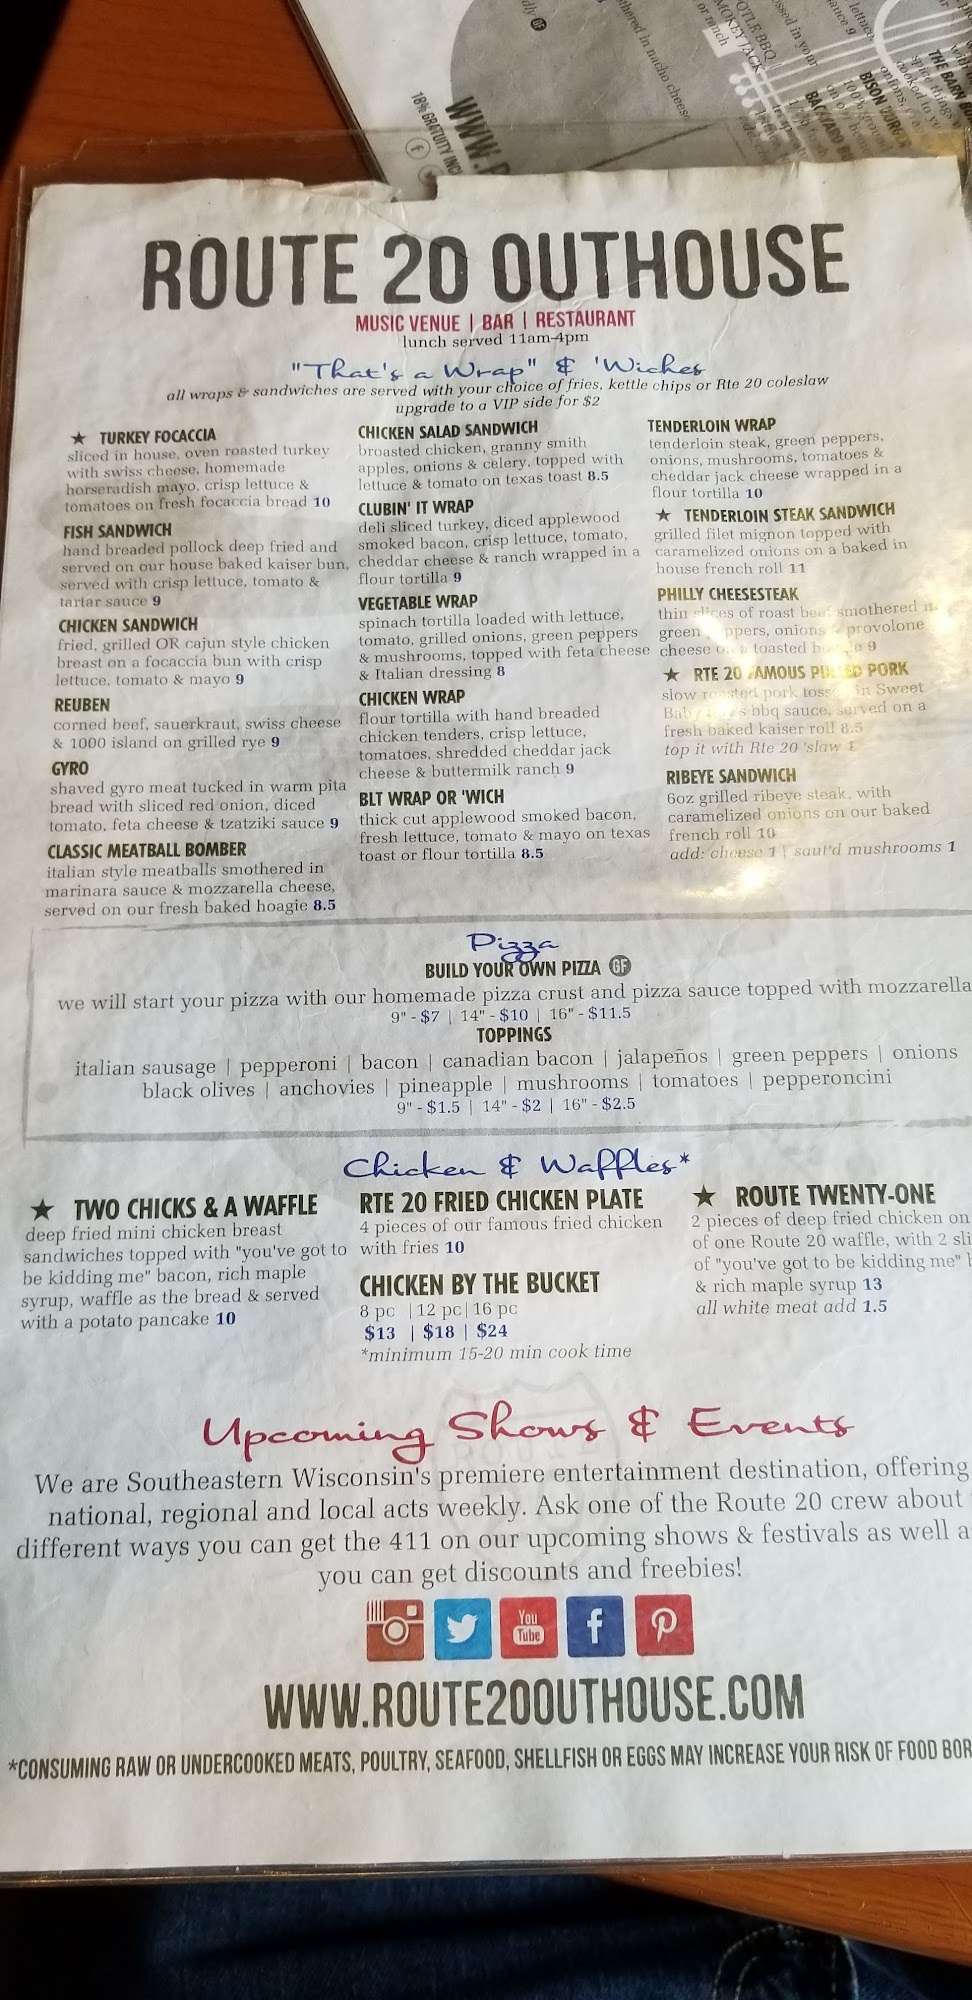 18% GRATUITY INC
WWW.
BISON BURGER
ROUTE 20 OUTHOUSE
MUSIC VENUE | BAR | RESTAURANT
lunch served 11am-4pm
"That's a Wrap" & 'Wiches
all wraps & sandwiches are served with your choice of fries, kettle chips or Rte 20 coleslaw
upgrade to a VIP side for $2
★ TURKEY FOCACCIA
sliced in house, oven roasted turkey
with swiss cheese, homemade
horseradish mayo, crisp lettuce &
tomatoes on fresh focaccia bread 10
FISH SANDWICH
hand breaded pollock deep fried and
served on our house baked kaiser bun,
served with crisp lettuce, tomato &
tartar sauce 9
CHICKEN SANDWICH
fried, grilled OR cajun style chicken
breast on a focaccia bun with crisp
lettuce, tomato & mayo 9
REUBEN
corned beef, sauerkraut, swiss cheese
& 1000 island on grilled rye 9
GYRO
shaved gyro meat tucked in warm pita
bread with sliced red onion, diced
tomato, feta cheese & tzatziki sauce 9
CLASSIC MEATBALL BOMBER
italian style meatballs smothered in
marinara sauce & mozzarella cheese,
served on our fresh baked hoagie 8.5
CHICKEN SALAD SANDWICH
broasted chicken, granny smith
apples, onions & celery, topped with
lettuce & tomato on texas toast 8.5
CLUBIN' IT WRAP
deli sliced turkey, diced applewood
smoked bacon, crisp lettuce, tomato,
cheddar cheese & ranch wrapped in a
flour tortilla 9
VEGETABLE WRAP
spinach tortilla loaded with lettuce,
tomato, grilled onions, green peppers
& mushrooms, topped with feta cheese
& Italian dressing 8
CHICKEN WRAP
flour tortilla with hand breaded
chicken tenders, crisp lettuce,
tomatoes, shredded cheddar jack
cheese & buttermilk ranch 9
BLT WRAP OR 'WICH
thick cut applewood smoked bacon,
fresh lettuce, tomato & mayo on texas
toast or flour tortilla 8.5
TENDERLOIN WRAP
tenderloin steak, green peppers,
onions, mushrooms, tomatoes &
cheddar jack cheese wrapped in a
flour tortilla 10
★ TENDERLOIN STEAK SANDWICH
grilled filet mignon topped with
caramelized onions on a baked in
house french roll 11
PHILLY CHEESESTEAK
thin slices of roast beef smothered in
green peppers, onions & provolone
cheese on a toasted hoagie 9
★ RTE 20 FAMOUS PULLED PORK
slow roasted pork tossed in Sweet
Baby Ray's bbq sauce, served on a
fresh baked kaiser roll 8.5
top it with Rte 20 'slaw 1
RIBEYE SANDWICH
6oz grilled ribeye steak, with
caramelized onions on our baked
french roll 10
add: cheese 1 | saut'd mushrooms 1
Pizza
BUILD YOUR OWN PIZZA GF
we will start your pizza with our homemade pizza crust and pizza sauce topped with mozzarella
9" - $7 | 14" - $10 | 16" - $11.5
TOPPINGS
italian sausage | pepperoni | bacon | canadian bacon | jalapeños | green peppers | onions
black olives | anchovies | pineapple | mushrooms | tomatoes | pepperoncini
9" - $1.5 | 14" - $2 | 16" - $2.5
Chicken & Waffles*
★ TWO CHICKS & A WAFFLE
deep fried mini chicken breast
sandwiches topped with "you've got to
be kidding me" bacon, rich maple
syrup, waffle as the bread & served
with a potato pancake 10
RTE 20 FRIED CHICKEN PLATE
4 pieces of our famous fried chicken
with fries 10
CHICKEN BY THE BUCKET
8 pc | 12 pc | 16 pc
$13 | $18 | $24
*minimum 15-20 min cook time
★ ROUTE TWENTY-ONE
2 pieces of deep fried chicken on
of one Route 20 waffle, with 2 sli
of "you've got to be kidding me"
& rich maple syrup 13
all white meat add 1.5
Upcoming Shows & Events
We are Southeastern Wisconsin's premiere entertainment destination, offering
national, regional and local acts weekly. Ask one of the Route 20 crew about
different ways you can get the 411 on our upcoming shows & festivals as well a
you can get discounts and freebies!
You Tube
WWW.ROUTE20OUTHOUSE.COM
*CONSUMING RAW OR UNDERCOOKED MEATS, POULTRY, SEAFOOD, SHELLFISH OR EGGS MAY INCREASE YOUR RISK OF FOOD BOR